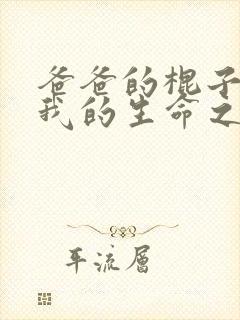 爸爸的棍子
我的生命之
平流层